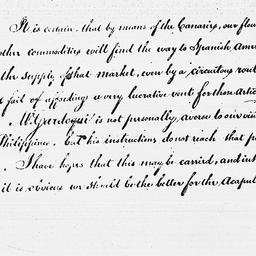 It is certain, that by means of the Canaries, our flou
other commodities will find the way to Spanish Amer
the supply of that market, even by a circuitous rout
fail of affording a very lucrative vent for those artic
Mr Gardoqui is not personally, averse to our visi
Philippines, but his instructions do not reach that p
I have hopes that this may be carried, and int
it is obvious we should be the better for the Acapul